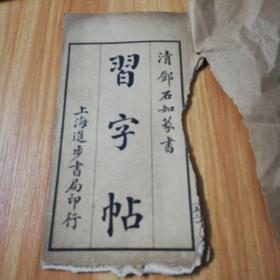 清鄧石如篆書
習字帖
上海進步書局印行